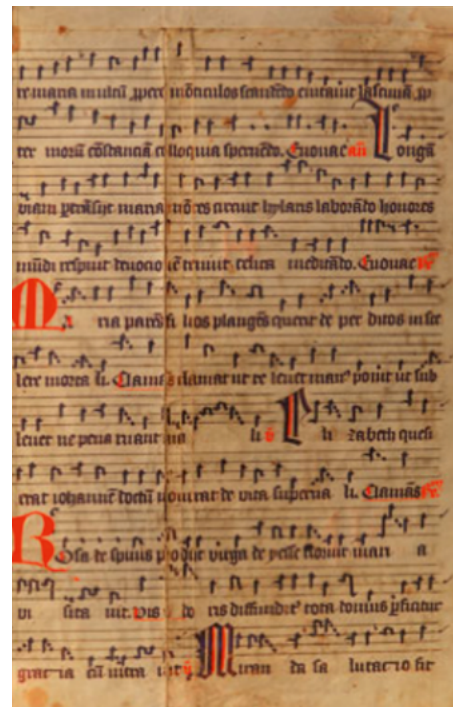 re maria multū ꝓpere mōticulos scandēdo euitauit lasciuiā ꝓp
ter morū cōstanciā colloquia spernēdo. Euouae añ Longā
viam ꝑtrāsijt maria mōtes circuit hylaris laborādo honores
mūdi respuit deuocioē tenuit celica meditādo. Euouae
Maria parēs filios plangēs querit de perditos in sce
lere morta li. Clamās clamat ut re leuet manꝰ ponit ut sub
leuet ne pena ruant ma li Eli zabeth quesi
erat iohannē doctū nouerat de vita superna li. Clamās
Rosa de spinis prodijt virga de yesse floruit mari a
vi sita uit. vis do ris diffundit tota domus ꝑficitur
gracia cū intra uit Miran da sa lutacio fit